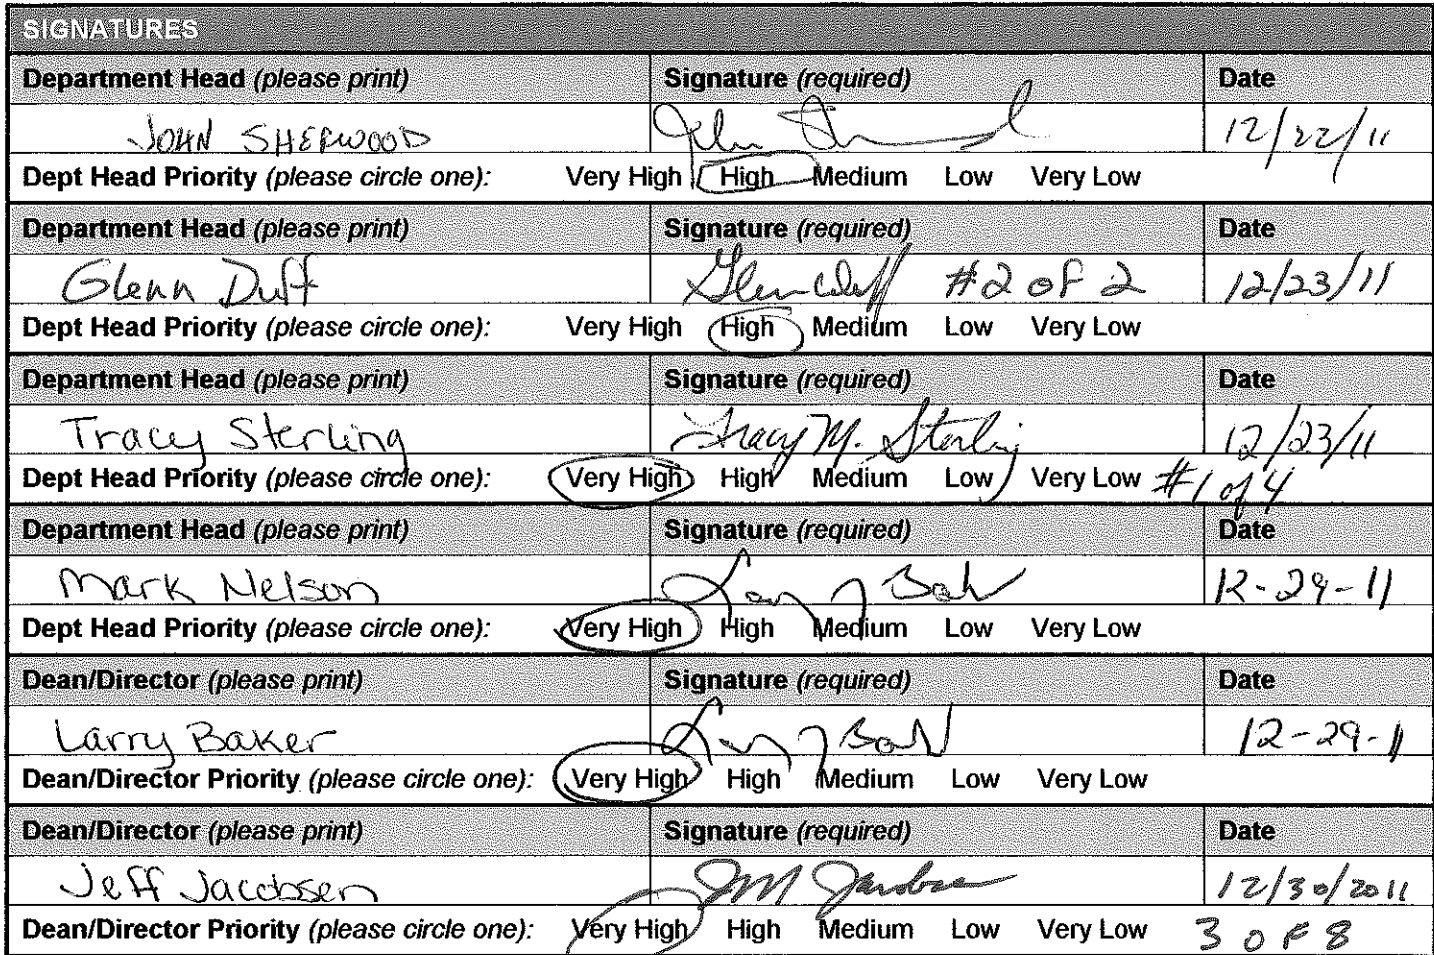 SIGNATURES
Department Head (please print) Signature (required) Date
JOHN SHERWOOD John Sherwood 12/22/11
Dept Head Priority (please circle one): Very High High Medium Low Very Low
Department Head (please print) Signature (required) Date
Glenn Duff Glenn Duff #2 of 2 12/23/11
Dept Head Priority (please circle one): Very High High Medium Low Very Low
Department Head (please print) Signature (required) Date
Tracy Sterling Tracy M. Sterling 12/23/11
Dept Head Priority (please circle one): Very High High Medium Low Very Low #1 of 4
Department Head (please print) Signature (required) Date
Mark Nelson Larry J Bak 12-29-11
Dept Head Priority (please circle one): Very High High Medium Low Very Low
Dean/Director (please print) Signature (required) Date
Larry Baker Larry J Bak 12-29-11
Dean/Director Priority (please circle one): Very High High Medium Low Very Low
Dean/Director (please print) Signature (required) Date
Jeff Jacobsen JM Jacobsen 12/30/2011
Dean/Director Priority (please circle one): Very High High Medium Low Very Low 3 OF 8